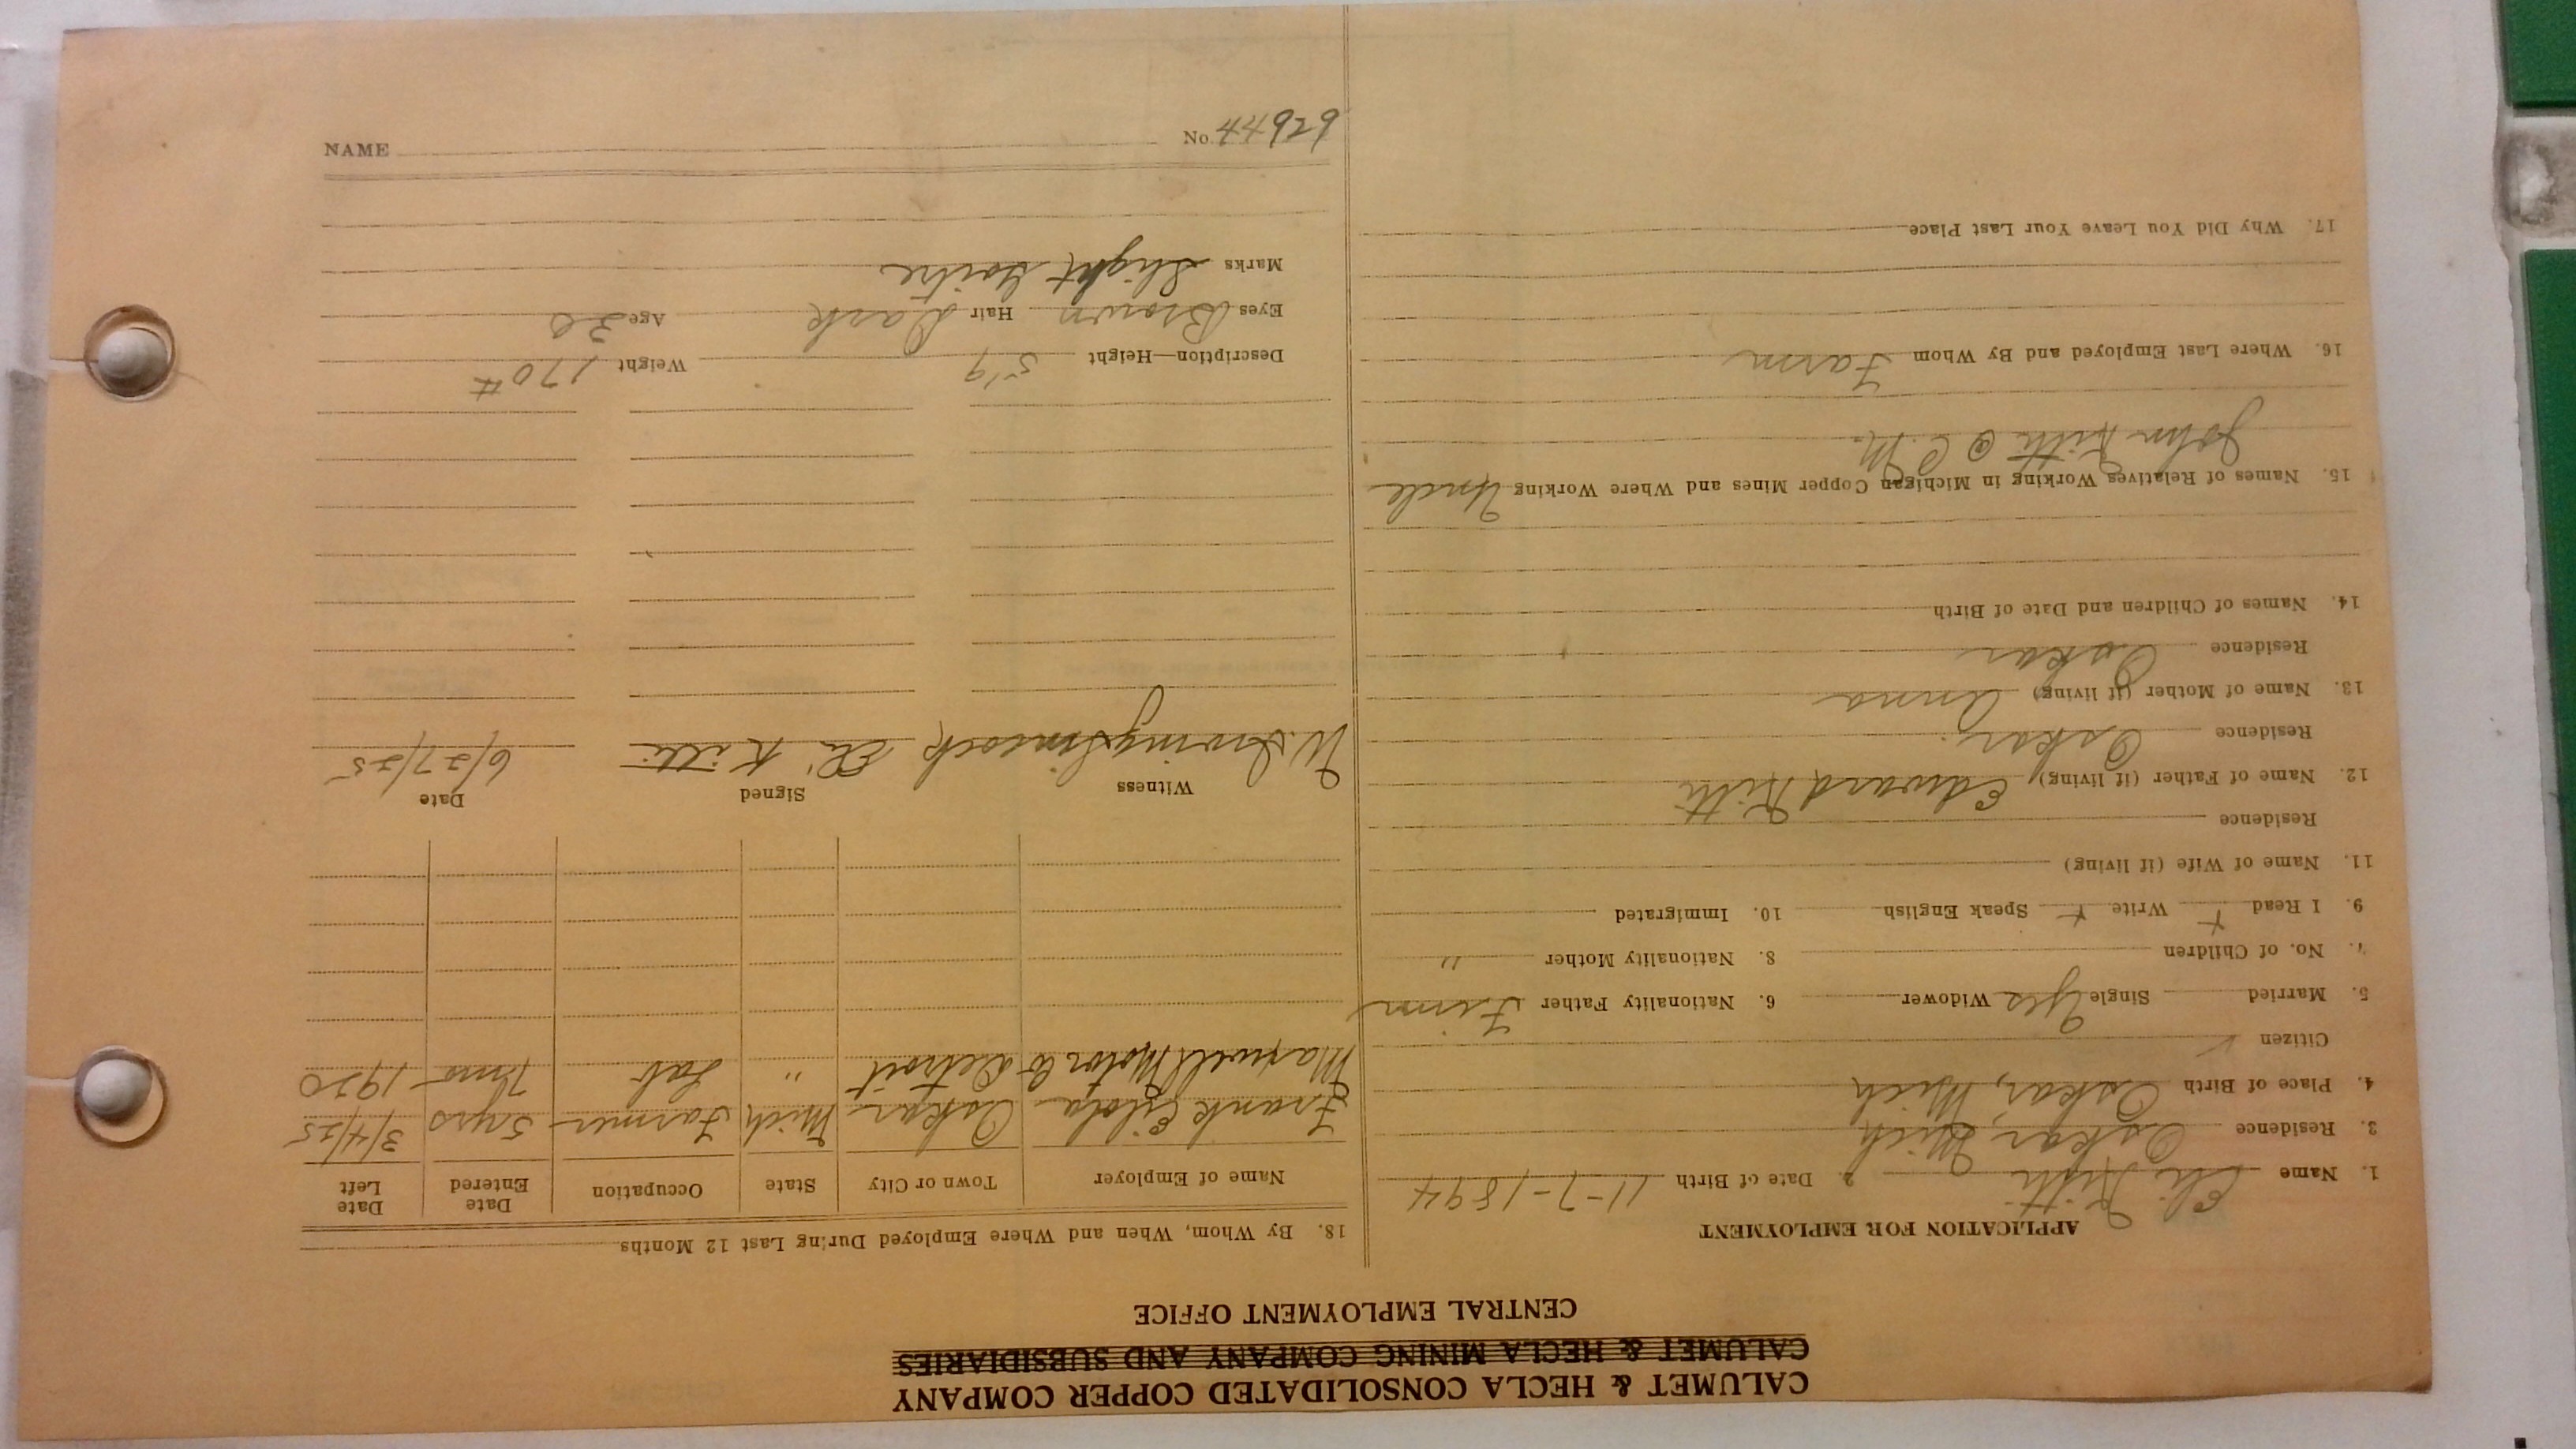 CALUMET & HECLA CONSOLIDATED COPPER COMPANY
CALUMET & HECLA MINING COMPANY AND SUBSIDIARIES
CENTRAL EMPLOYMENT OFFICE
APPLICATION FOR EMPLOYMENT
1. Name Eli Kitti 2. Date of Birth 11-7-1894
3. Residence Oskar, Mich
4. Place of Birth Oskar, Mich
Citizen ✓
5. Married Single Yes Widower 6. Nationality Father Finn
7. No. of Children 8. Nationality Mother "
9. I Read Write Speak English 10. Immigrated
11. Name of Wife (if living)
Residence
12. Name of Father (if living) Edward Kitti
Residence Oskar
13. Name of Mother (if living) Anna
Residence Oskar
14. Names of Children and Date of Birth
15. Names of Relatives Working in Michigan Copper Mines and Where Working Uncle
John Kitti @ C. M.
16. Where Last Employed and By Whom Farm
17. Why Did You Leave Your Last Place
18. By Whom, When and Where Employed During Last 12 Months
Name of Employer Town or City State Occupation Date Entered Date Left
Frank Oskar Mich Farmer 5 yrs 3/4/25
Maxwell Motor Co Detroit " Lab 7 mos 1920
Witness Signed Date
W. Irving Eli Kitti 6/27/25
Description—Height 5'9 Weight 170 #
Eyes Brown Hair Dark Age 30
Marks Slight Goitre
NAME No. 44929